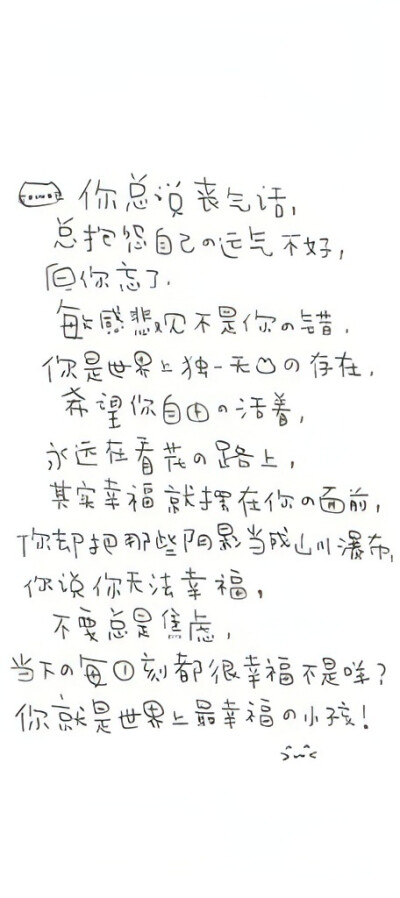 你总说丧气话,
总抱怨自己の运气不好,
但你忘了.
敏感悲观不是你の错.
你是世界上独一无二の存在.
希望你自由の活着,
永远在看花の路上,
其实幸福就摆在你の面前,
你却把那些阴影当成山川瀑布,
你说你无法幸福.
不要总是焦虑.
当下の每一刻都很幸福不是咩?
你就是世界上最幸福の小孩!